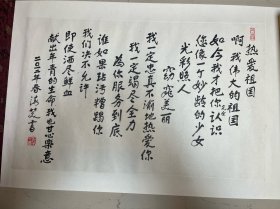 热爱祖国
啊我伟大的祖国
如今我才把你认识
您像一个妙龄的少女
光彩照人
窈窕美丽
我一定忠真不渝地热爱你
我一定竭尽全力
为你服务到底
谁如果玷污糟蹋你
我们决不允许
即使洒尽鲜血
献出年青的生命我也甘心乐意
二〇一八年春海芝书